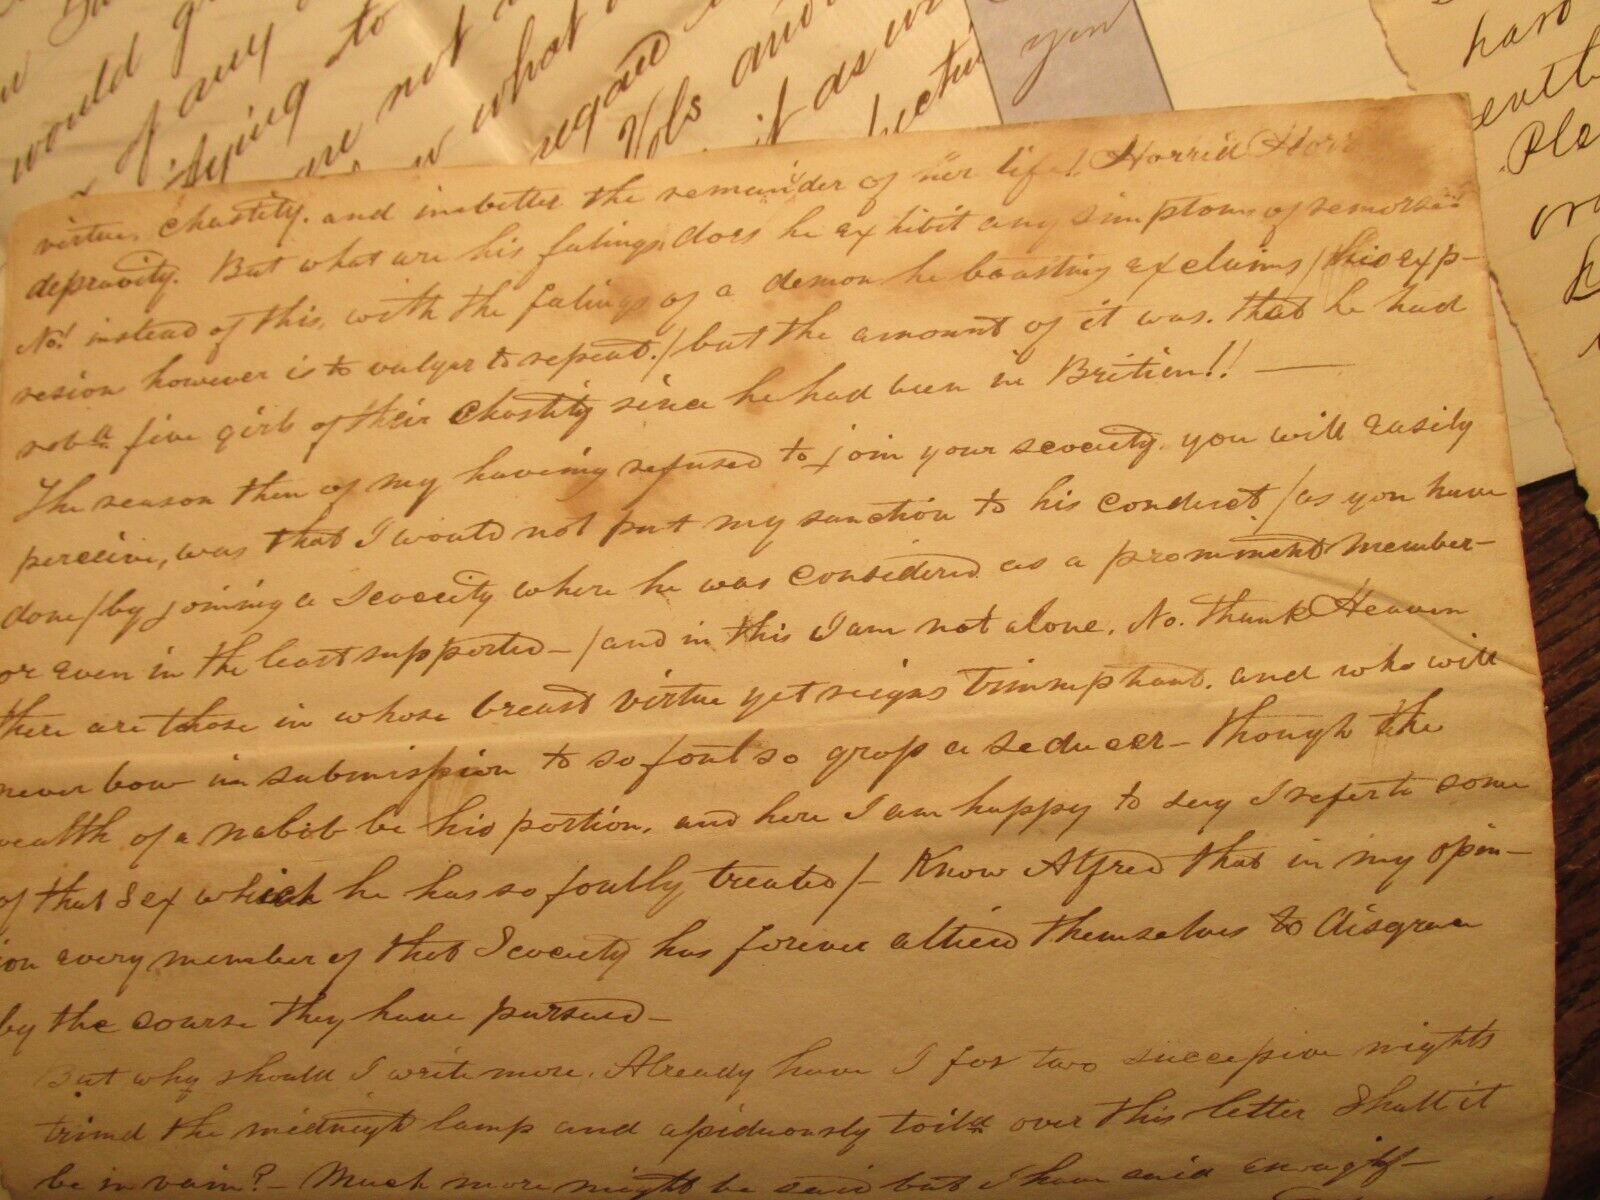 would
of any
to
not
what
regard
Vols and
it as
you
hard
Plea
virtue, chastity. and inbetter the remainder of her life! Horrid Horr
depravity. But what are his falings, does he exhibit any simptoms of remorse!!
No! instead of this, with the falings of a demon he boasting exclaims /this exp-
resion however is to vulger to repeat./ but the amount of it was. that he had
robd five girls of their chastity since he had been in Britien!! —
The reason then of my haveing refused to join your soceiety. you will easily
perceive, was that I would not put my sanction to his conduct /as you have
done/ by joining a Soceiety where he was considered as a prominent member-
or even in the least supported - /and in this I am not alone. No. thank Heaven
there are those in whose breast virtue yet reigns trimmphant. and who will
never bow in submission to so foul so gross a seducer - though the
wealth of a nabob be his portion. and here I am happy to say I refer to some
of that Sex which he has so foully treated/- Know Alfred that in my opin-
ion every member of that Soceiety has forever allied themselves to disgrace
by the course they have pursued -
But why should I write more. Already have I for two successive nights
trimd the midneight lamp and assiduously toild over this letter Shall it
be in vain? - Much more might be said but I have said enough -